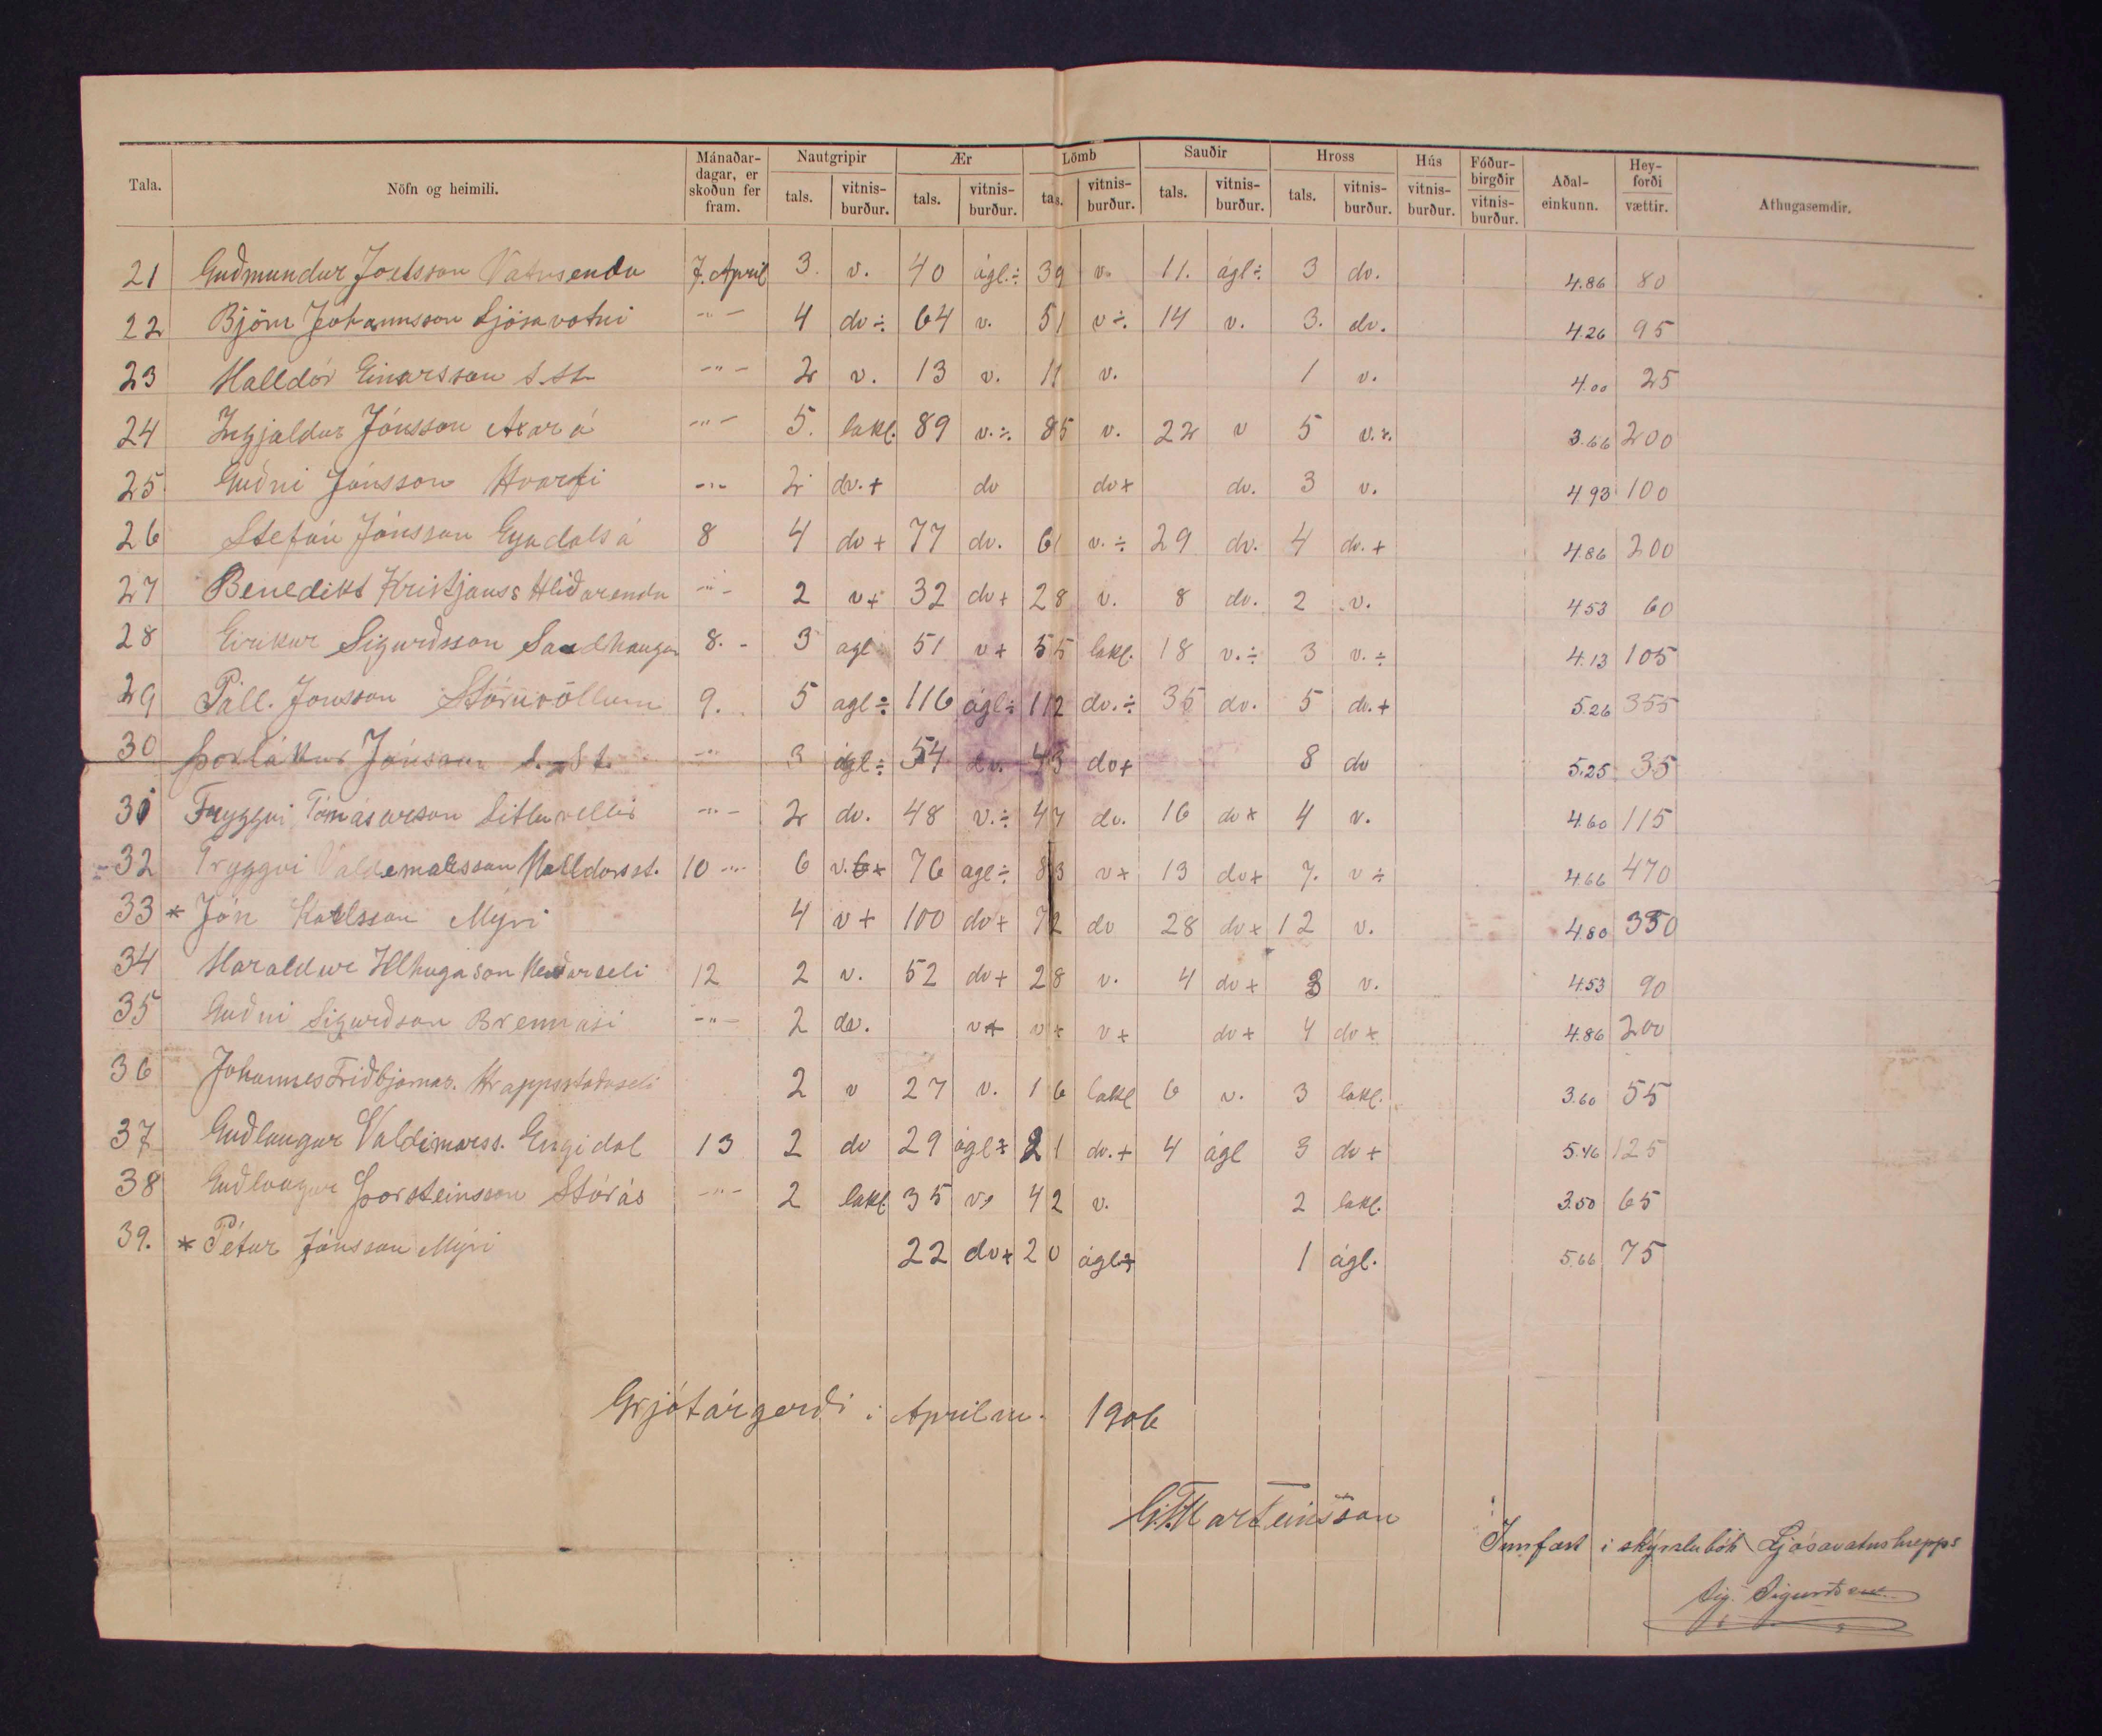 Tala. Nöfn og heimili. Mánaðar-dagar, er skoðun fer fram. Nautgripir tals. vitnis-burður. Ær tals. vitnis-burður. Lömb tals. vitnis-burður. Sauðir tals. vitnis-burður. Hross tals. vitnis-burður. Hús vitnis-burður. Fóður-birgðir vitnis-burður. Aðal-einkunn. Hey-forði vættir. Athugasemdir.
21 Guðmundur Vatnsenda 7. April 3. v. 40 ágl.÷ 39 v. 11. ágl÷ 3 dv. 4.86 80
22 Björn Jóhannsson Ljósavatni -"- 4 dv÷ 64 v. 51 v÷. 14 v. 3. dv. 4.26 95
23 Halldór Einarsson s.st. -"- 2 v. 13 v. 11 v. 1 v. 4.00 25
24 Ingjaldur Jónsson Axará -"- 5. lakl. 89 v.÷ 85 v. 22 v 5 v.÷ 3.66 200
25 Guðni Jónsson Hvarfi -"- 2 dv.+ dv dv+ dv. 3 v. 4.93 100
26 Stefán Jónsson Eyadalsá 8 4 dv+ 77 dv. 61 v.÷ 29 dv. 4 dv.+ 4.86 200
27 Benedikt Kristjanss Hliðarenda -"- 2 v+ 32 dv+ 28 v. 8 dv. 2 v. 4.53 60
28 Eirikur Sigurðsson Sandhaugar 8. - 3 agl 51 v+ 55 lakl. 18 v.÷ 3 v.÷ 4.13 105
29 Páll. Jónsson Stóruvöllum 9. 5 agl÷ 116 ágl÷ 112 dv.÷ 35 dv. 5 dv.+ 5.26 355
30 Þorlákur Jónsson s.-st. -"- 3 ágl÷ 54 dv. 43 dv+ 8 dv 5.25 35
31 Tryggvi Tómasarson Litluvellir -"- 2 dv. 48 v.÷ 47 dv. 16 dv+ 4 v. 4.60 115
32 Tryggvi Valdemarsson Halldorsst. 10 -"- 6 v.+ 76 agl÷ 83 v+ 13 dv+ 7. v÷ 4.66 470
33 * Jón Karlsson Mýri 4 v+ 100 dv+ 72 dv 28 dv+ 12 v. 4.80 350
34 Haraldur Illhugason Heiðarseli 12 2 v. 52 dv+ 28 v. 4 dv+ 3 v. 4.53 90
35 Guðni Sigurðson Brennási -"- 2 dv. v+ v+ v+ dv+ 4 dv+ 4.86 200
36 Johannes Friðbjarnar. Hrappsstaðaseli 2 v 27 v. 16 lakl 6 v. 3 lakl. 3.60 55
37 Guðlaugur Valdimarss. Engidal 13 2 dv 29 ágl÷ 21 dv.+ 4 ágl 3 dv+ 5.46 125
38 Guðlaugur Þorsteinsson Stórás -"- 2 lakl. 35 v÷ 42 v. 2 lakl. 3.50 65
39. * Pétur Jónsson Mýri 22 dv+ 20 ágl÷ 1 ágl. 5.66 75
Grjótárgerði i April m. 1906
G.T. Marteinsson
Innfært i skýrslubók Ljósavatnshrepps
Sig. Sigurðsson